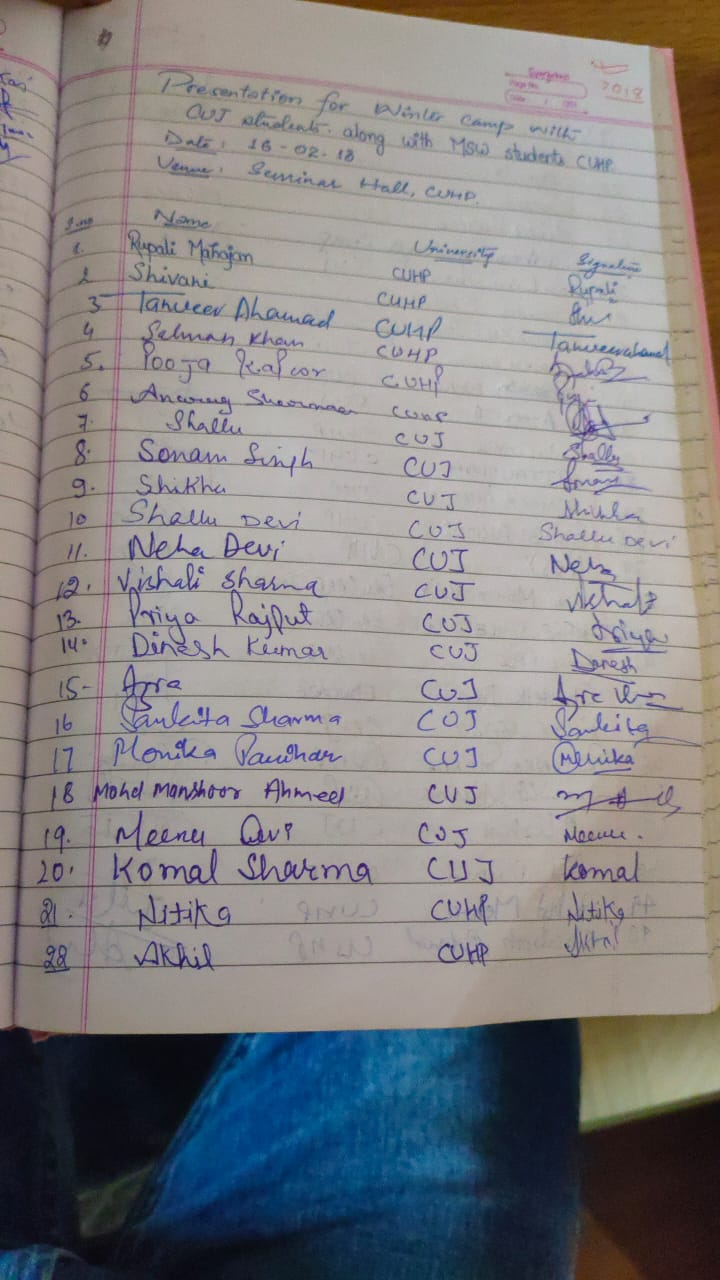 2018
Presentation for Winter Camp with
CUJ students. along with MSW students CUHP.
Date: 16-02-18
Venue: Seminar Hall, CUHP.
S.no Name University Signature
1. Rupali Mahajan CUHP Rupali
2 Shivani CUHP
3 Tanveer Ahamad CUHP Tanveerahamad
4 Salman Khan CUHP
5. Pooja Kapoor CUHP
6 Anurag Sharma CUHP
7. Shallu CUJ Shallu
8. Sonam Singh CUJ
9. Shikha CUJ Shikha
10 Shallu Devi CUJ Shallu Devi
11. Neha Devi CUJ Neha
12. Vishali Sharma CUJ
13. Priya Rajput CUJ Priya
14. Dinesh Kumar CUJ Dinesh
15- Azra CUJ
16 Sankita Sharma CUJ Sankita
17 Monika Parihar CUJ Monika
18 Mohd Manshoor Ahmed CUJ
19. Meenu Devi CUJ Meenu.
20. Komal Sharma CUJ Komal
21. Nitika CUHP Nitika
22 Akhil CUHP Akhil